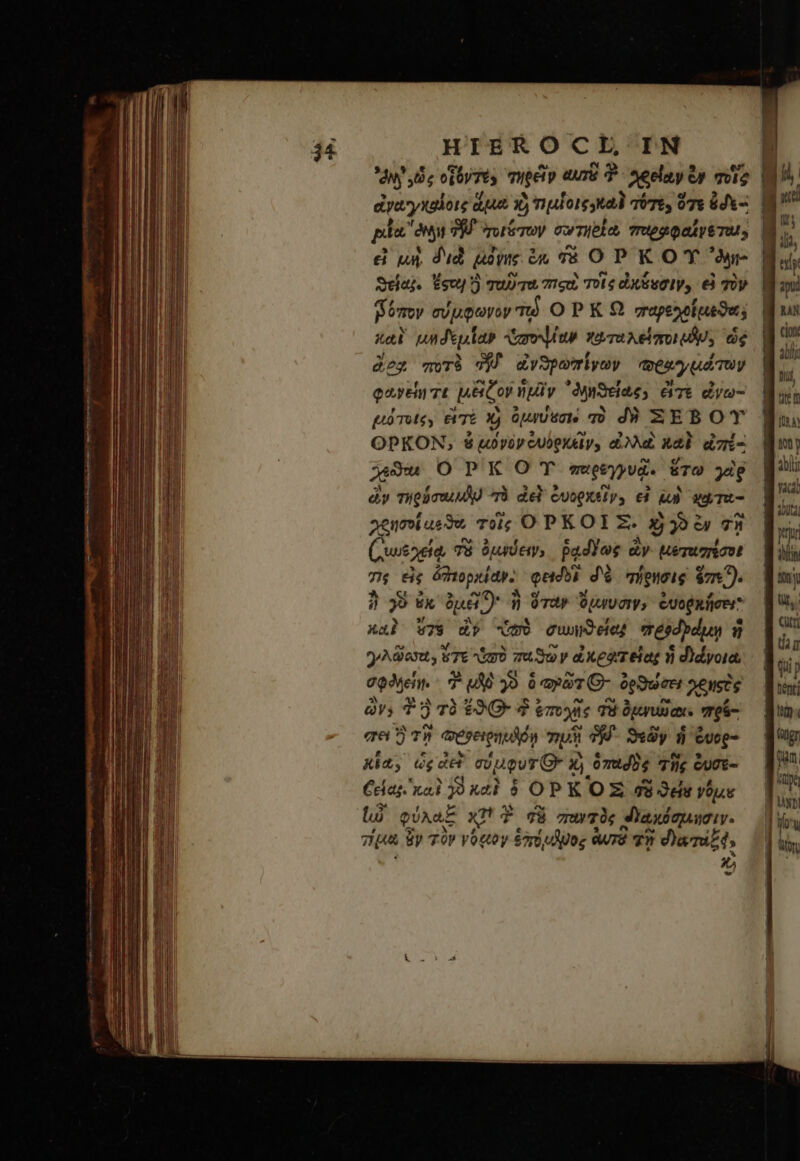 34 HIEROCL. IN
ἀλλ', ὡς οἷόν τε, τηρεῖν αὐτοῦ τὴν χρείαν ἐν τοῖς
ἀναγκαίοις ἅμα καὶ τιμίοις, καὶ τότε, ὅτε οὐδε-
μία ἄλλη τῶν τοιούτων σωτηρία παραφαίνεται,
εἰ μὴ διὰ μόνης ἐκ τοῦ ΟΡΚΟΥ ἀλη-
θείας. ἔσται δὲ ταῦτα πιστὰ τοῖς ἀκούουσιν, εἰ τὸν
τρόπον σύμφωνον τῷ ΟΡΚΩ παρεχοίμεθα,
καὶ μηδεμίαν ὑποψίαν καταλείποιμεν, ὡς
ἄρα ποτὲ τῶν ἀνθρωπίνων πραγμάτων
φανείη τι μεῖζον ἡμῖν ἀληθείας, εἴτε ἀνω-
μότοις, εἴτε καὶ ὀμνύουσι. τὸ δὴ ΣΕΒΟΥ
ΟΡΚΟΝ, οὐ μόνον εὐορκεῖν, ἀλλὰ καὶ ἀπέ-
χεσθαι ΟΡΚΟΥ παρεγγυᾷ. οὕτω γὰρ
ἂν τηρήσαιμεν τὸ ἀεὶ εὐορκεῖν, εἰ μὴ κατα-
χρησοίμεθα τοῖς ΟΡΚΟΙΣ. καὶ γὰρ ἐν τῇ
συνεχείᾳ τοῦ ὀμνύειν, ῥᾳδίως ἂν μεταπέσοι
τις εἰς ἐπιορκίαν· φειδοῖ δὲ τήρησις ἕπεται.
ἢ γὰρ οὐκ ὀμεῖται ἢ ὅταν ὄμνυσιν, εὐορκήσει·
καὶ οὔτε ἂν ὑπὸ συνηθείας προδράμῃ ἡ
γλῶσσα, οὔτε ὑπὸ παθῶν ἀκρατείας ἡ διάνοια
σφαλείη. τὴν μὲν γὰρ ὁ πρῶτος ὀρθώσει χρηστὸς
ὤν, τὴν δὲ τὸ ἔθος τῆς ἐποχῆς τοῦ ὀμνύναι. πρέ-
πει δὲ τῇ προειρημένῃ τιμῇ τῶν θεῶν ἡ εὐορ-
κία, ὡς ἀεὶ σύμφυτος καὶ ὀπαδὸς τῆς εὐσε-
βείας. καὶ γὰρ καὶ ὁ ΟΡΚΟΣ τοῦ θείου νόμου
ἦν φύλαξ κατὰ τὴν τοῦ παντὸς διακόσμησιν.
τίμα οὖν τὸν νόμον ἑπόμενος αὐτοῦ τῇ διατάξει,
καὶ